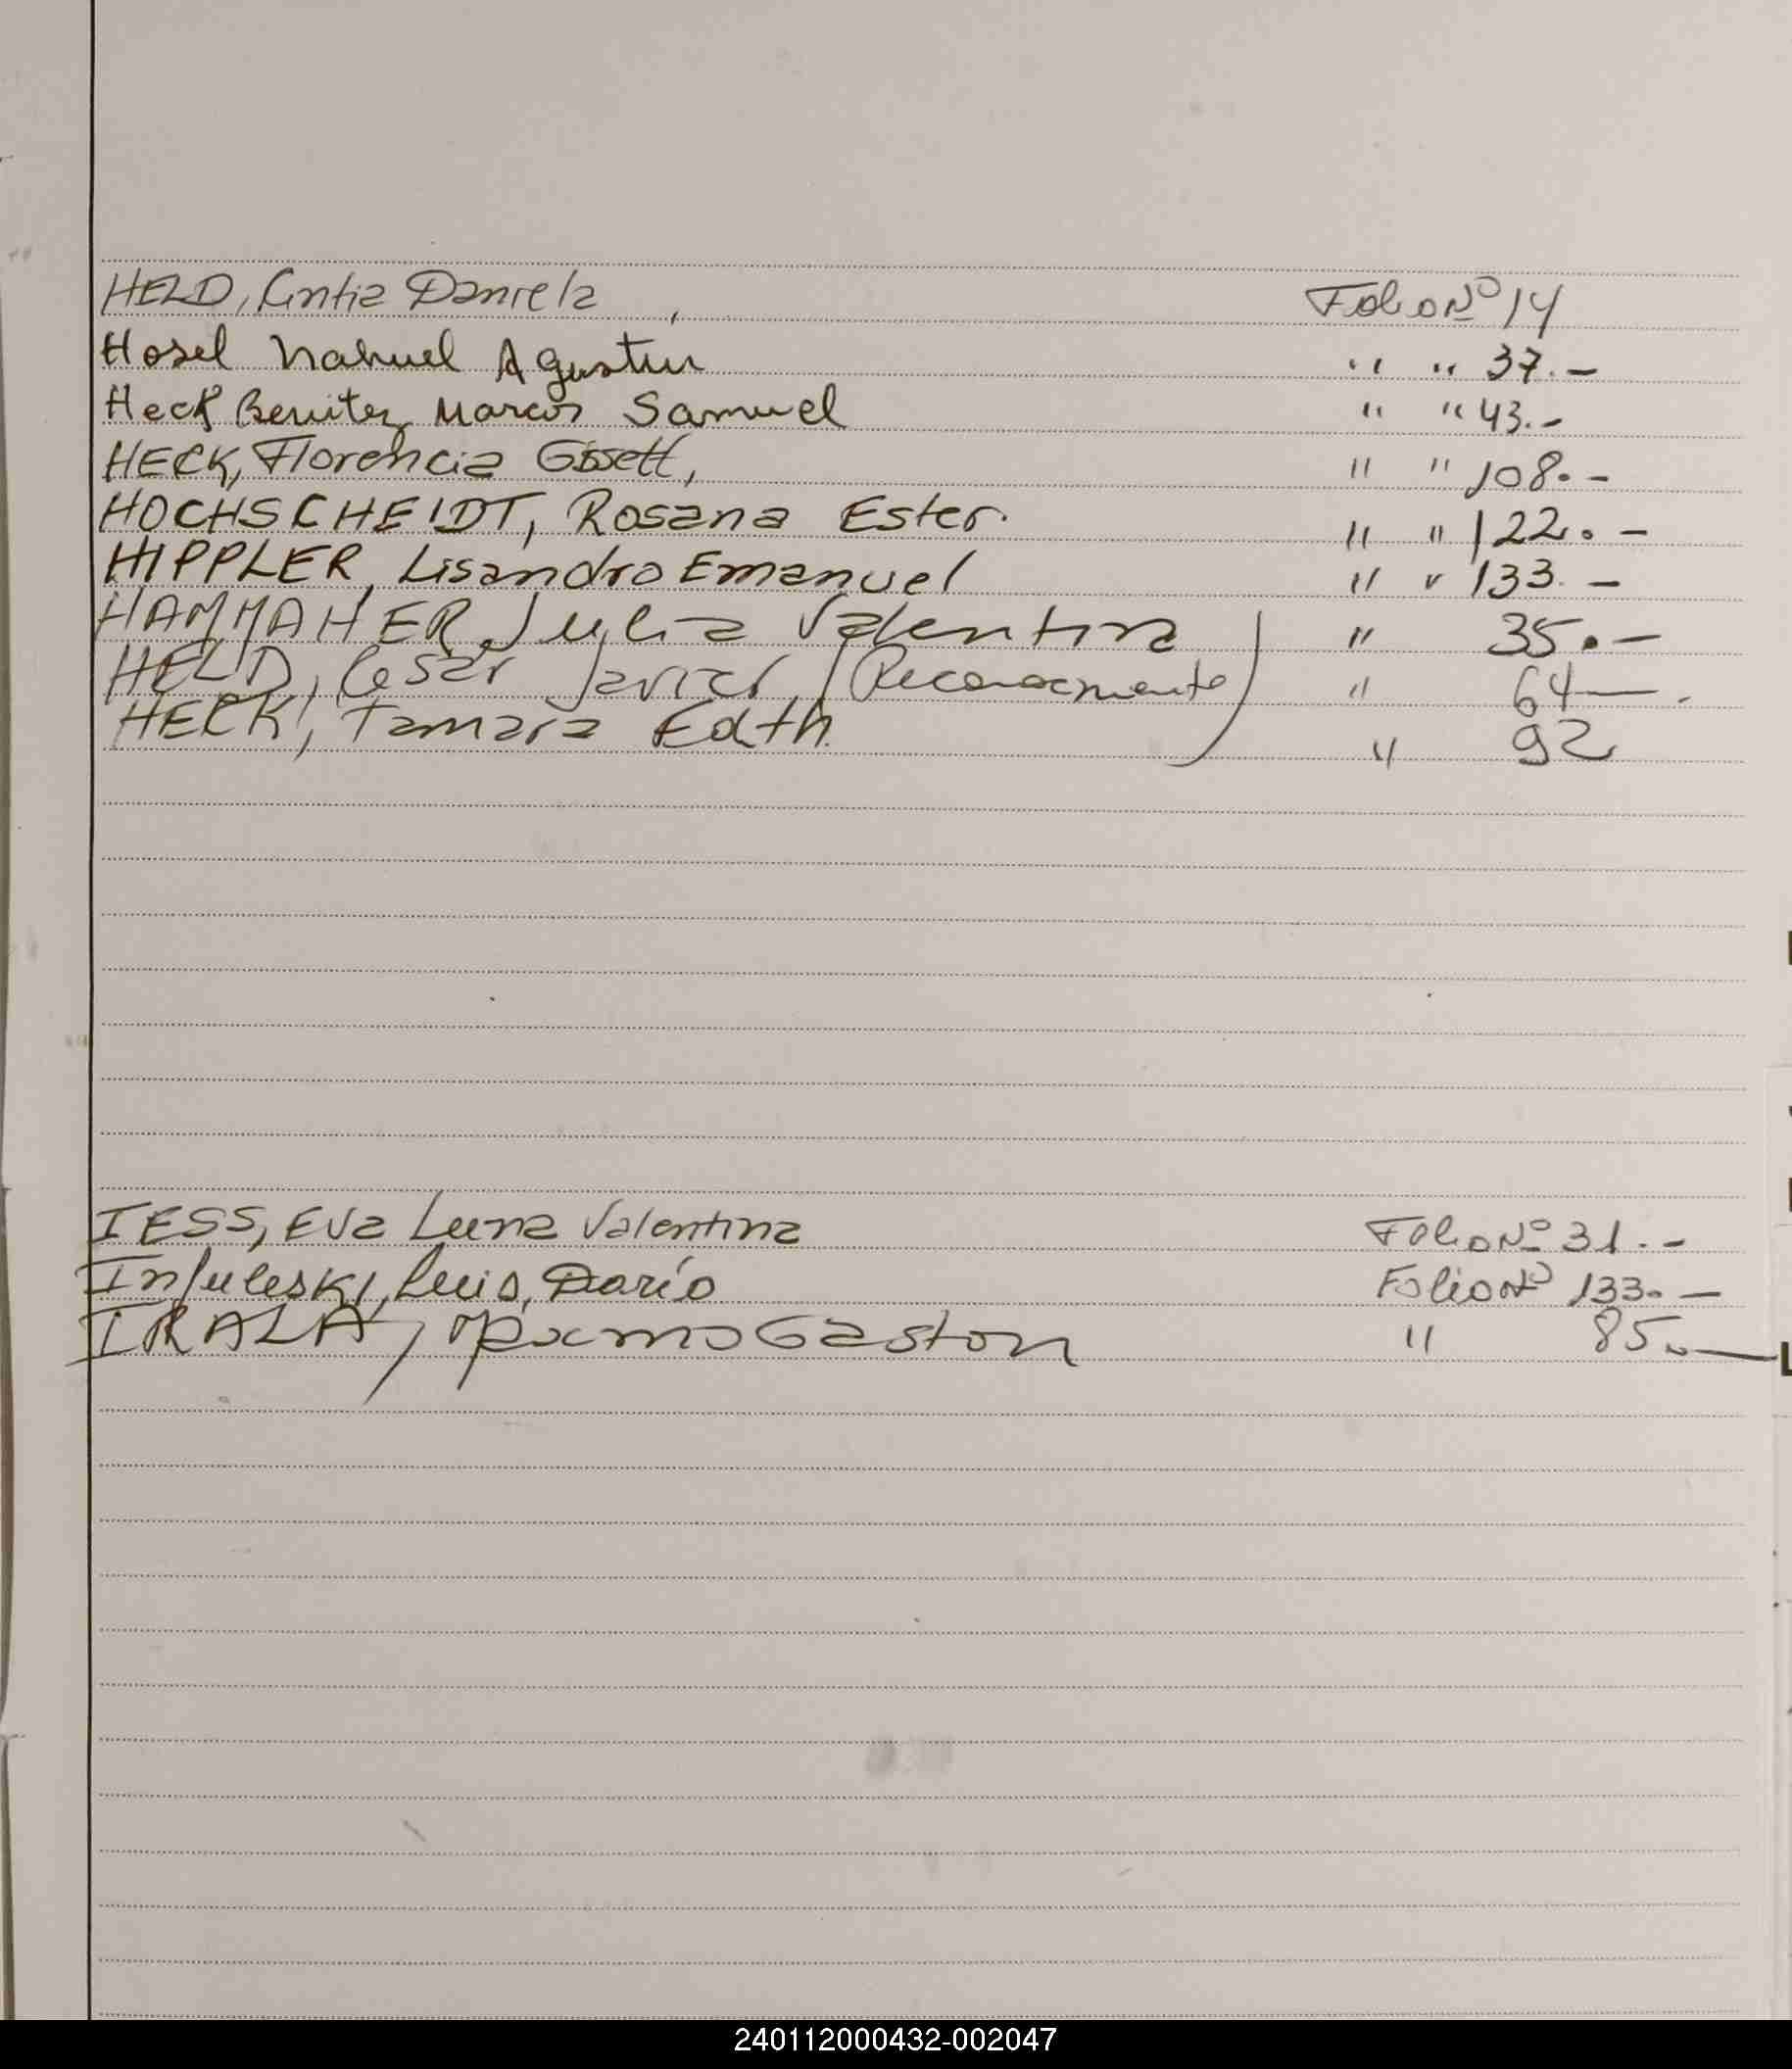 HELD, Cintia Daniela, Folio Nº 14
Hosel Nahuel Agustin " " 37.-
Heck Benitez Marcos Samuel " " 43.-
HECK, Florencia Gissett, " " 108.-
HOCHSCHEIDT, Rosana Ester. " " 122.-
HIPPLER, Lisandro Emanuel " " 133.-
HAMMAHER, Julia Valentina " 35.-
HELD, Cesar Javier (Reconocimiento) " 64-.
HECK, Tamara Edith. " 92
IESS, Eva Luna Valentina Folio Nº 31.-
Infuleski, Luis, Darío Folio Nº 133.-
IRALA, Gaston " 85.-
240112000432-002047